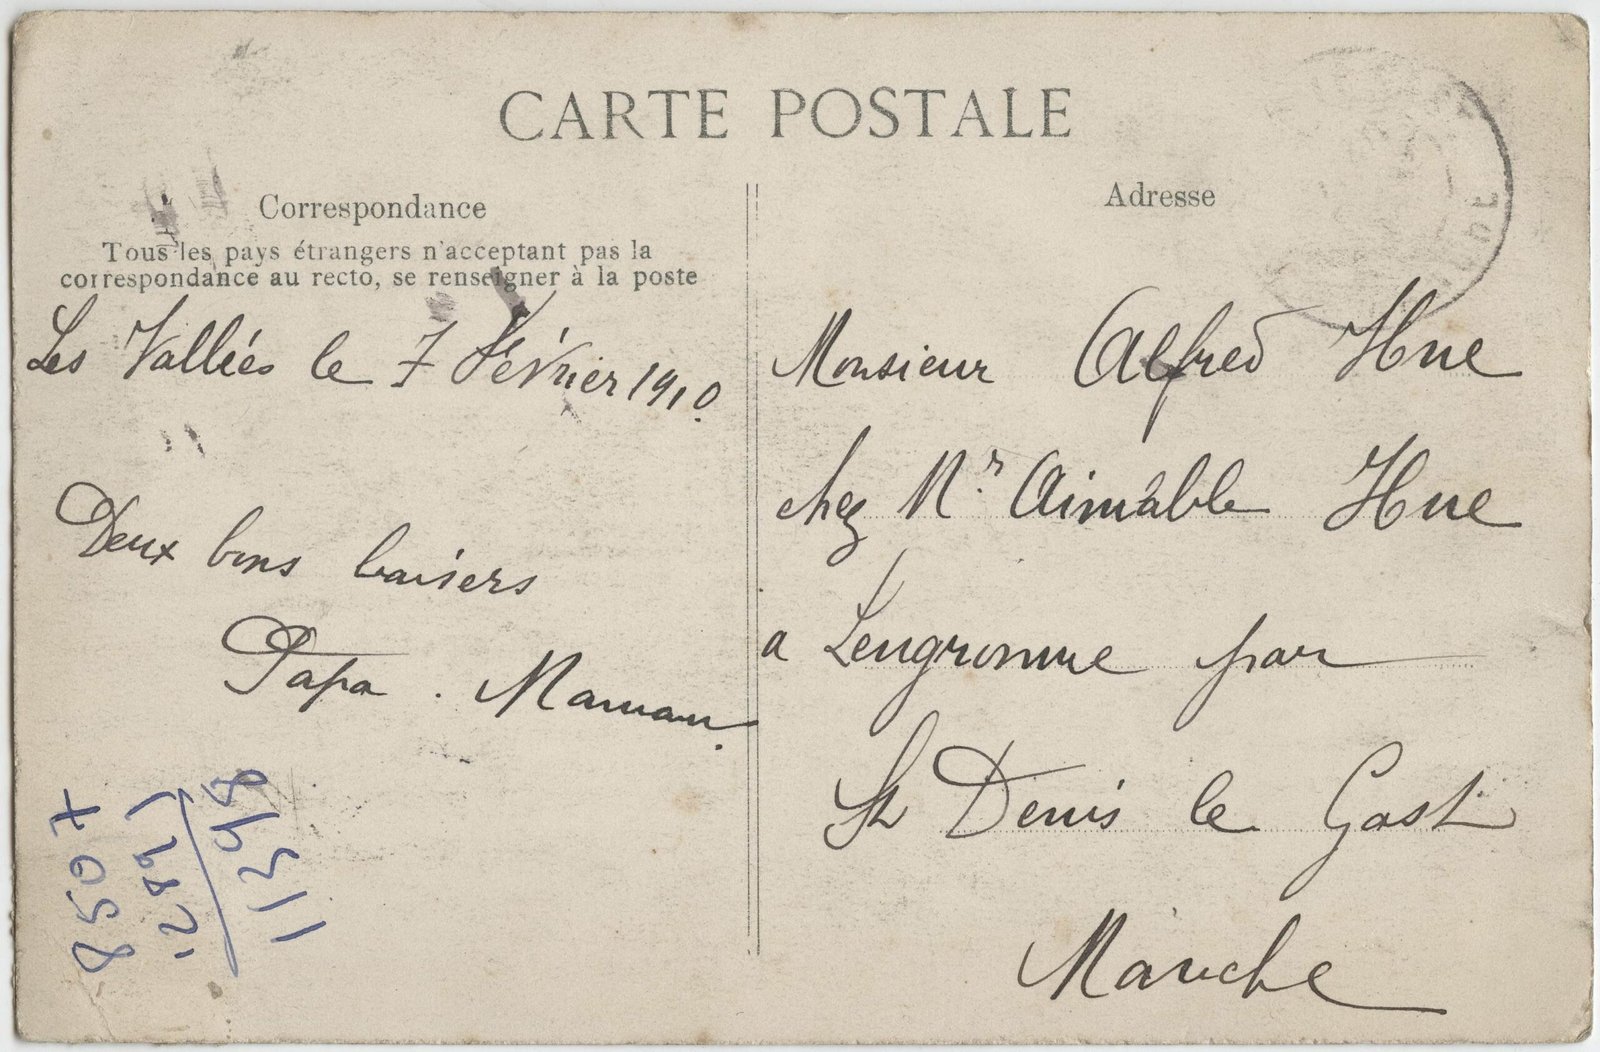 CARTE POSTALE
Correspondance
Tous les pays étrangers n'acceptant pas la
correspondance au recto, se renseigner à la poste
Les Vallées le 7 Février 1910.
Deux bons baisers
Papa. Maman.
Adresse
Monsieur Alfred Hue
chez Mr. Aimable Hue
a Lengronne par
St Denis le Gast
Manche